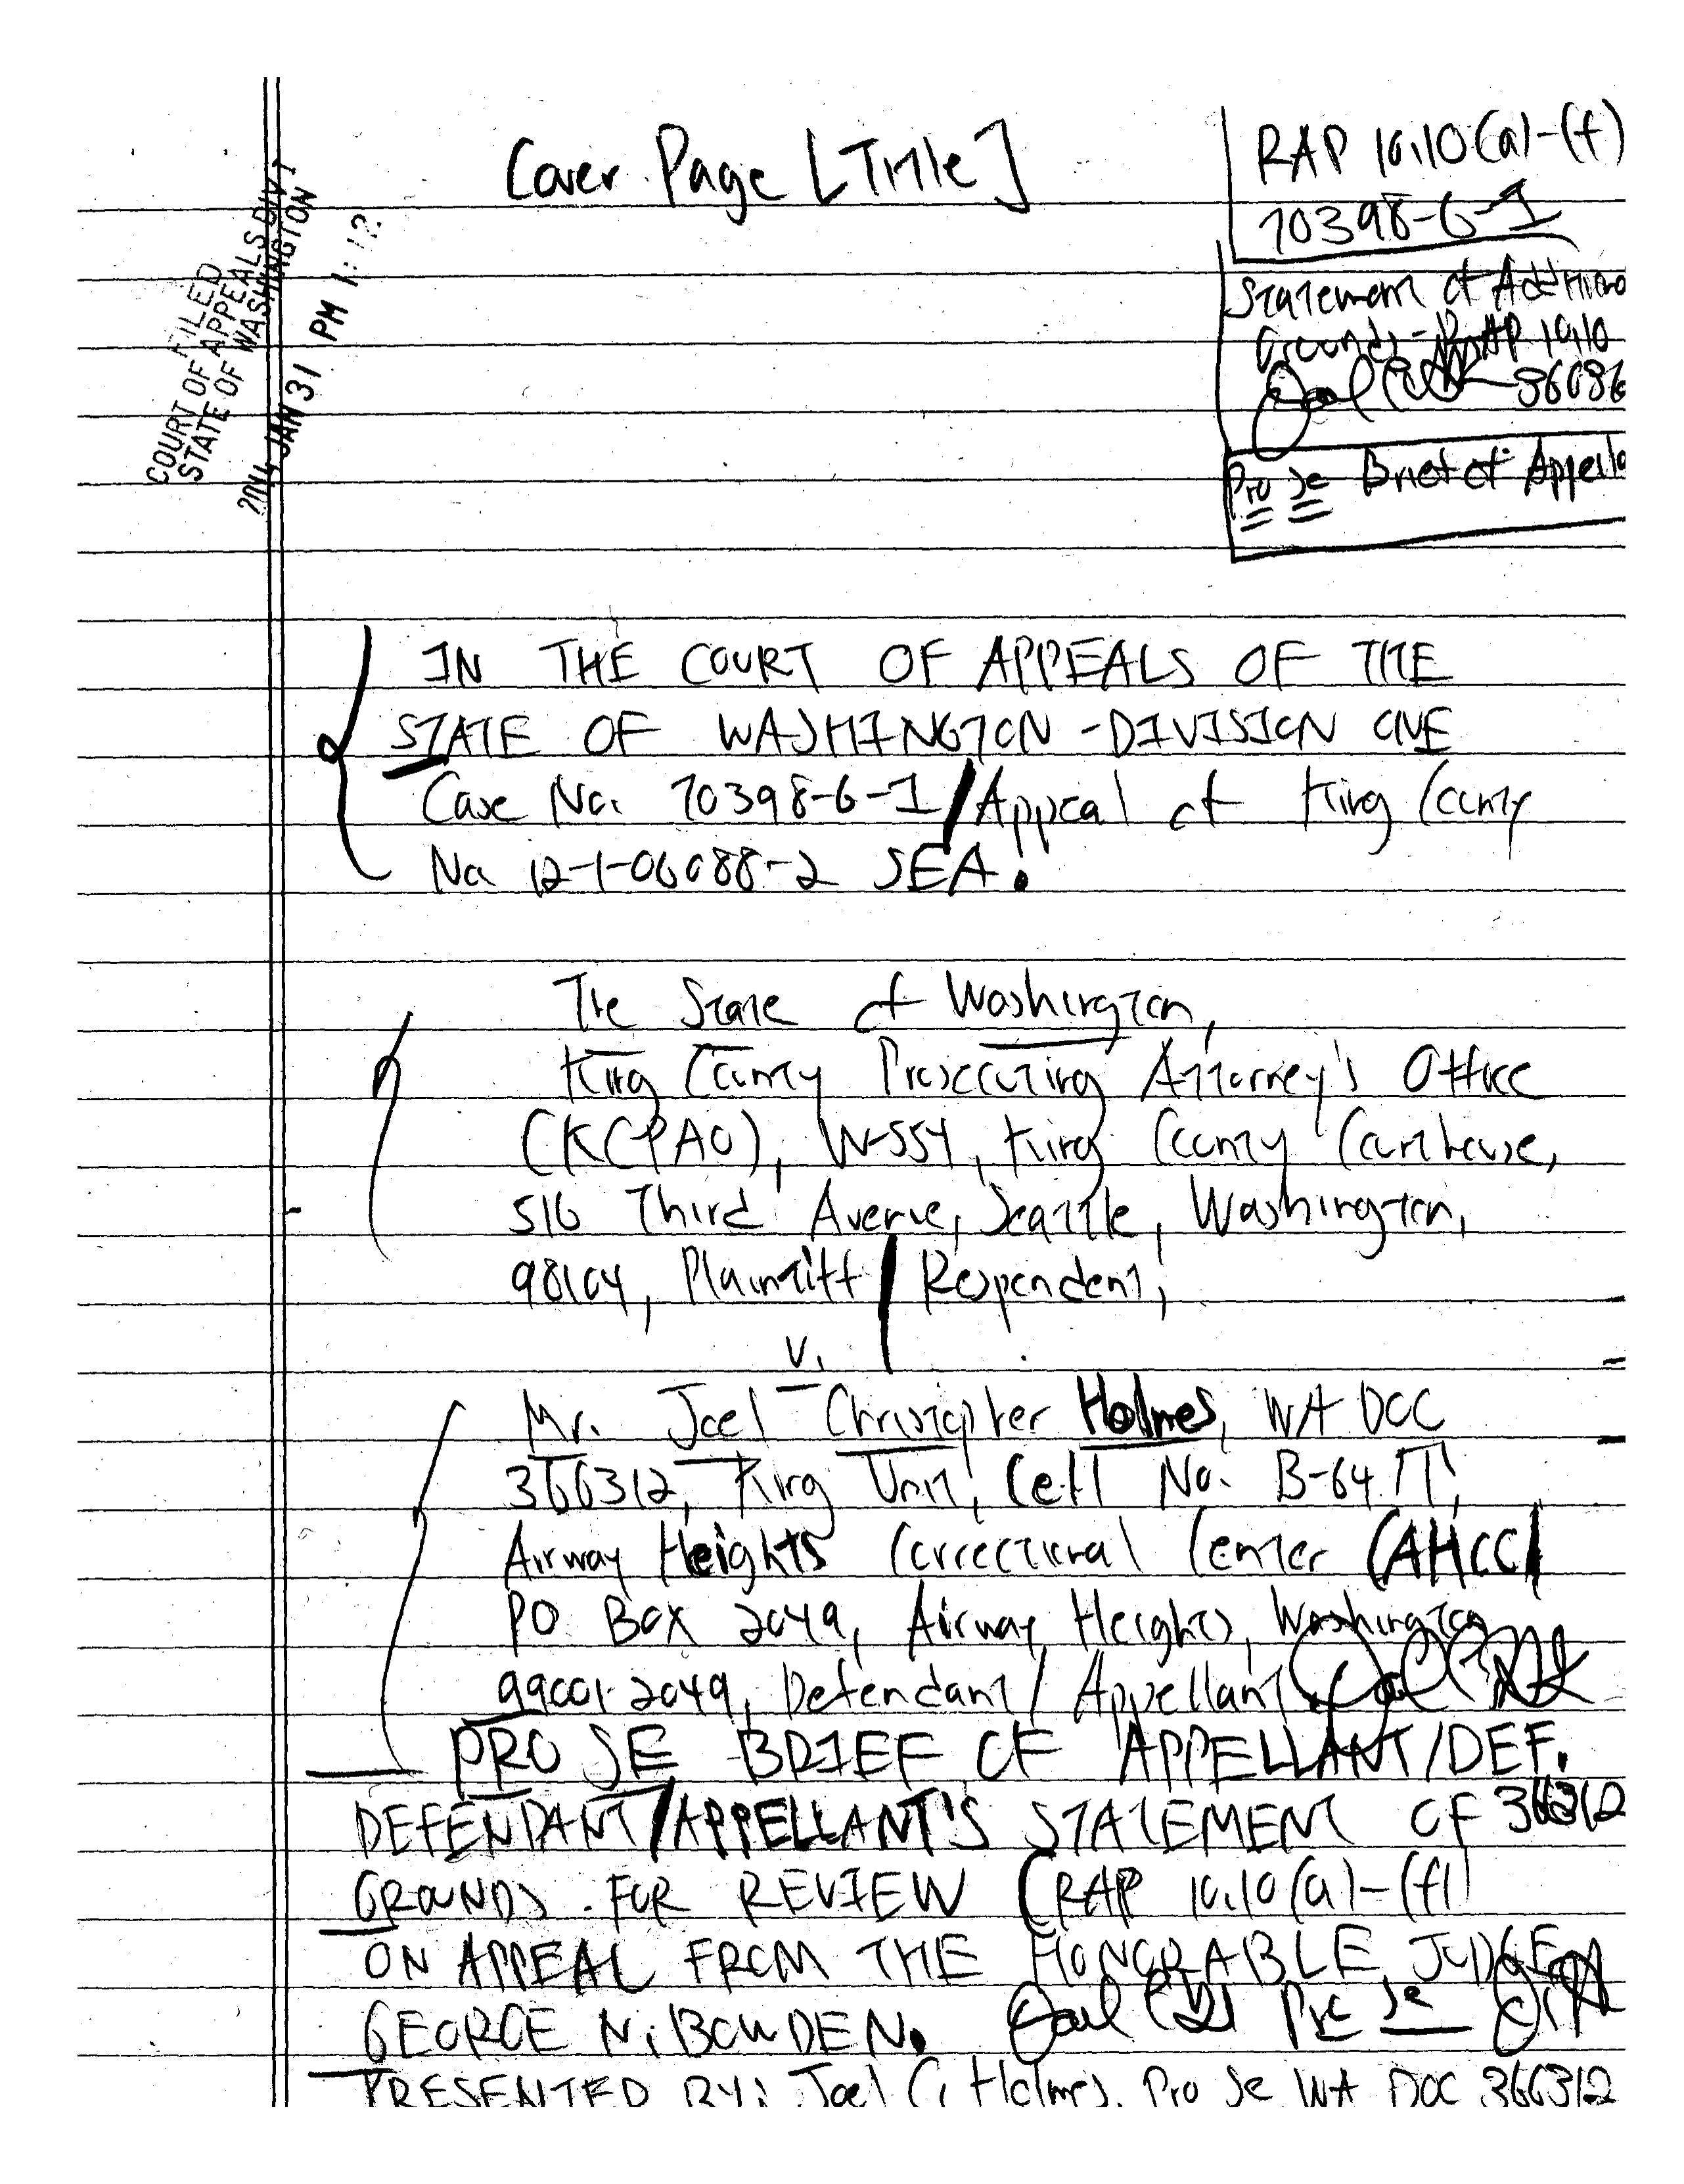 Cover Page [Title]
RAP 10.10(a)-(f)
70398-6-1
Statement of Additiona
Grounds - RAP 10.10
86086
Pro Se Brief of Appella
COURT OF APPEALS DIV 1
STATE OF WASHINGTON
FILED
2014 JAN 31 PM 1:12
IN THE COURT OF APPEALS OF THE
STATE OF WASHINGTON - DIVISION ONE
Case No. 70398-6-1 / Appeal of King County
No. 12-1-06088-2 SEA.
The State of Washington,
King County Prosecuting Attorney's Office
(KCPAO), W-554, King County Courthouse,
516 Third Avenue, Seattle, Washington,
98104, Plaintiff / Respondent,
v.
Mr. Joel Christopher Holmes, WA DOC
366312, King Unit, Cell No. B-64
Airway Heights Correctional Center (AHCC)
PO Box 2049, Airway Heights, Washington
99001-2049, Defendant / Appellant.
PRO SE BRIEF OF APPELLANT/DEF.
DEFENDANT/APPELLANT'S STATEMENT OF 366312
GROUNDS FOR REVIEW (RAP 10.10(a)-(f)
ON APPEAL FROM THE HONORABLE JUDGE
GEORGE N. BOWDEN. Pro Se
PRESENTED BY: Joel C. Holmes, Pro Se WA DOC 366312